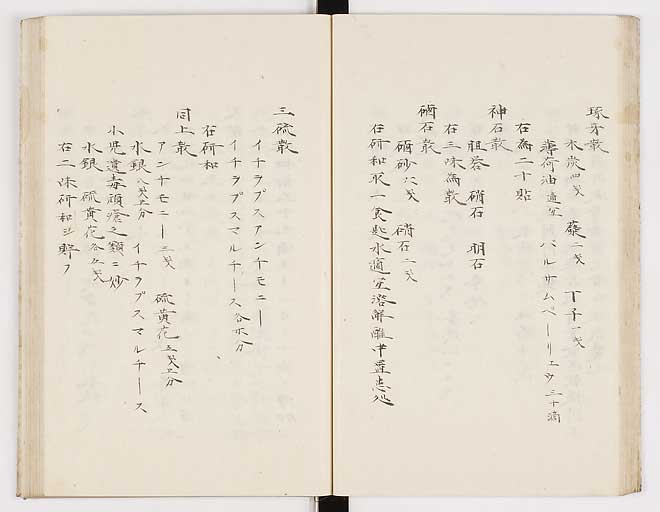 琢牙散
木炭四戔 蘗二戔 丁子一戔
薄荷油適宜 バルサムペーリユウ三十滴
右為二十貼
神石散
胆礬 硝石 明石
右三味為散
硇石散
硇砂六戔 硝石二戔
右研和取一食匙水適宜溶解醮巾蓋患処
三硫散
イチヲプスアンチモニー
イチヲプスマルチース各木分
右研和
同上散
アンチモニー三戔 硫黄花五戔五分
水銀八戔五分 イチヲプスマルチース
小児遺毒頑瘡之類ニ妙
水銀 硫黄花各五戔
右二味研和シ貯フ